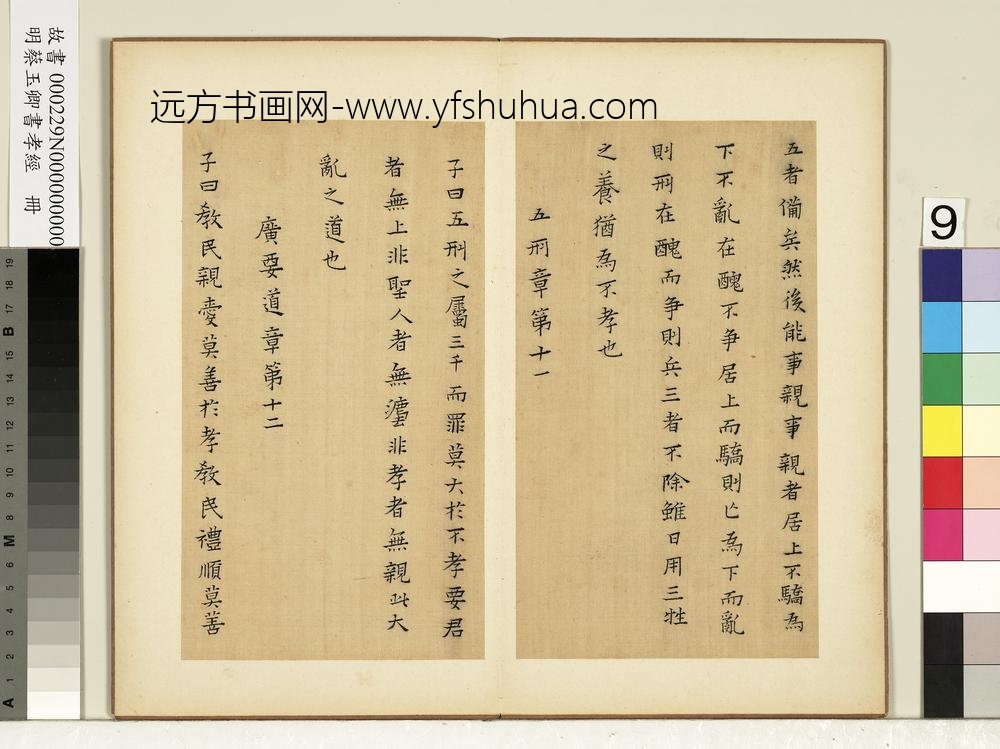 五者備矣然後能事親事親者居上不驕為
下不亂在醜不爭居上而驕則亡為下而亂
則刑在醜而爭則兵三者不除雖日用三牲
之養猶為不孝也
五刑章第十一
子曰五刑之屬三千而罪莫大於不孝要君
者無上非聖人者無灋非孝者無親此大
亂之道也
廣要道章第十二
子曰教民親愛莫善於孝教民禮順莫善
远方书画网-www.yfshuhua.com
故書 000229N000000000
明蔡玉卿書孝經 冊
9
A 1 2 3 4 5 6 M 8 9 10 11 12 13 14 15 B 17 18 19